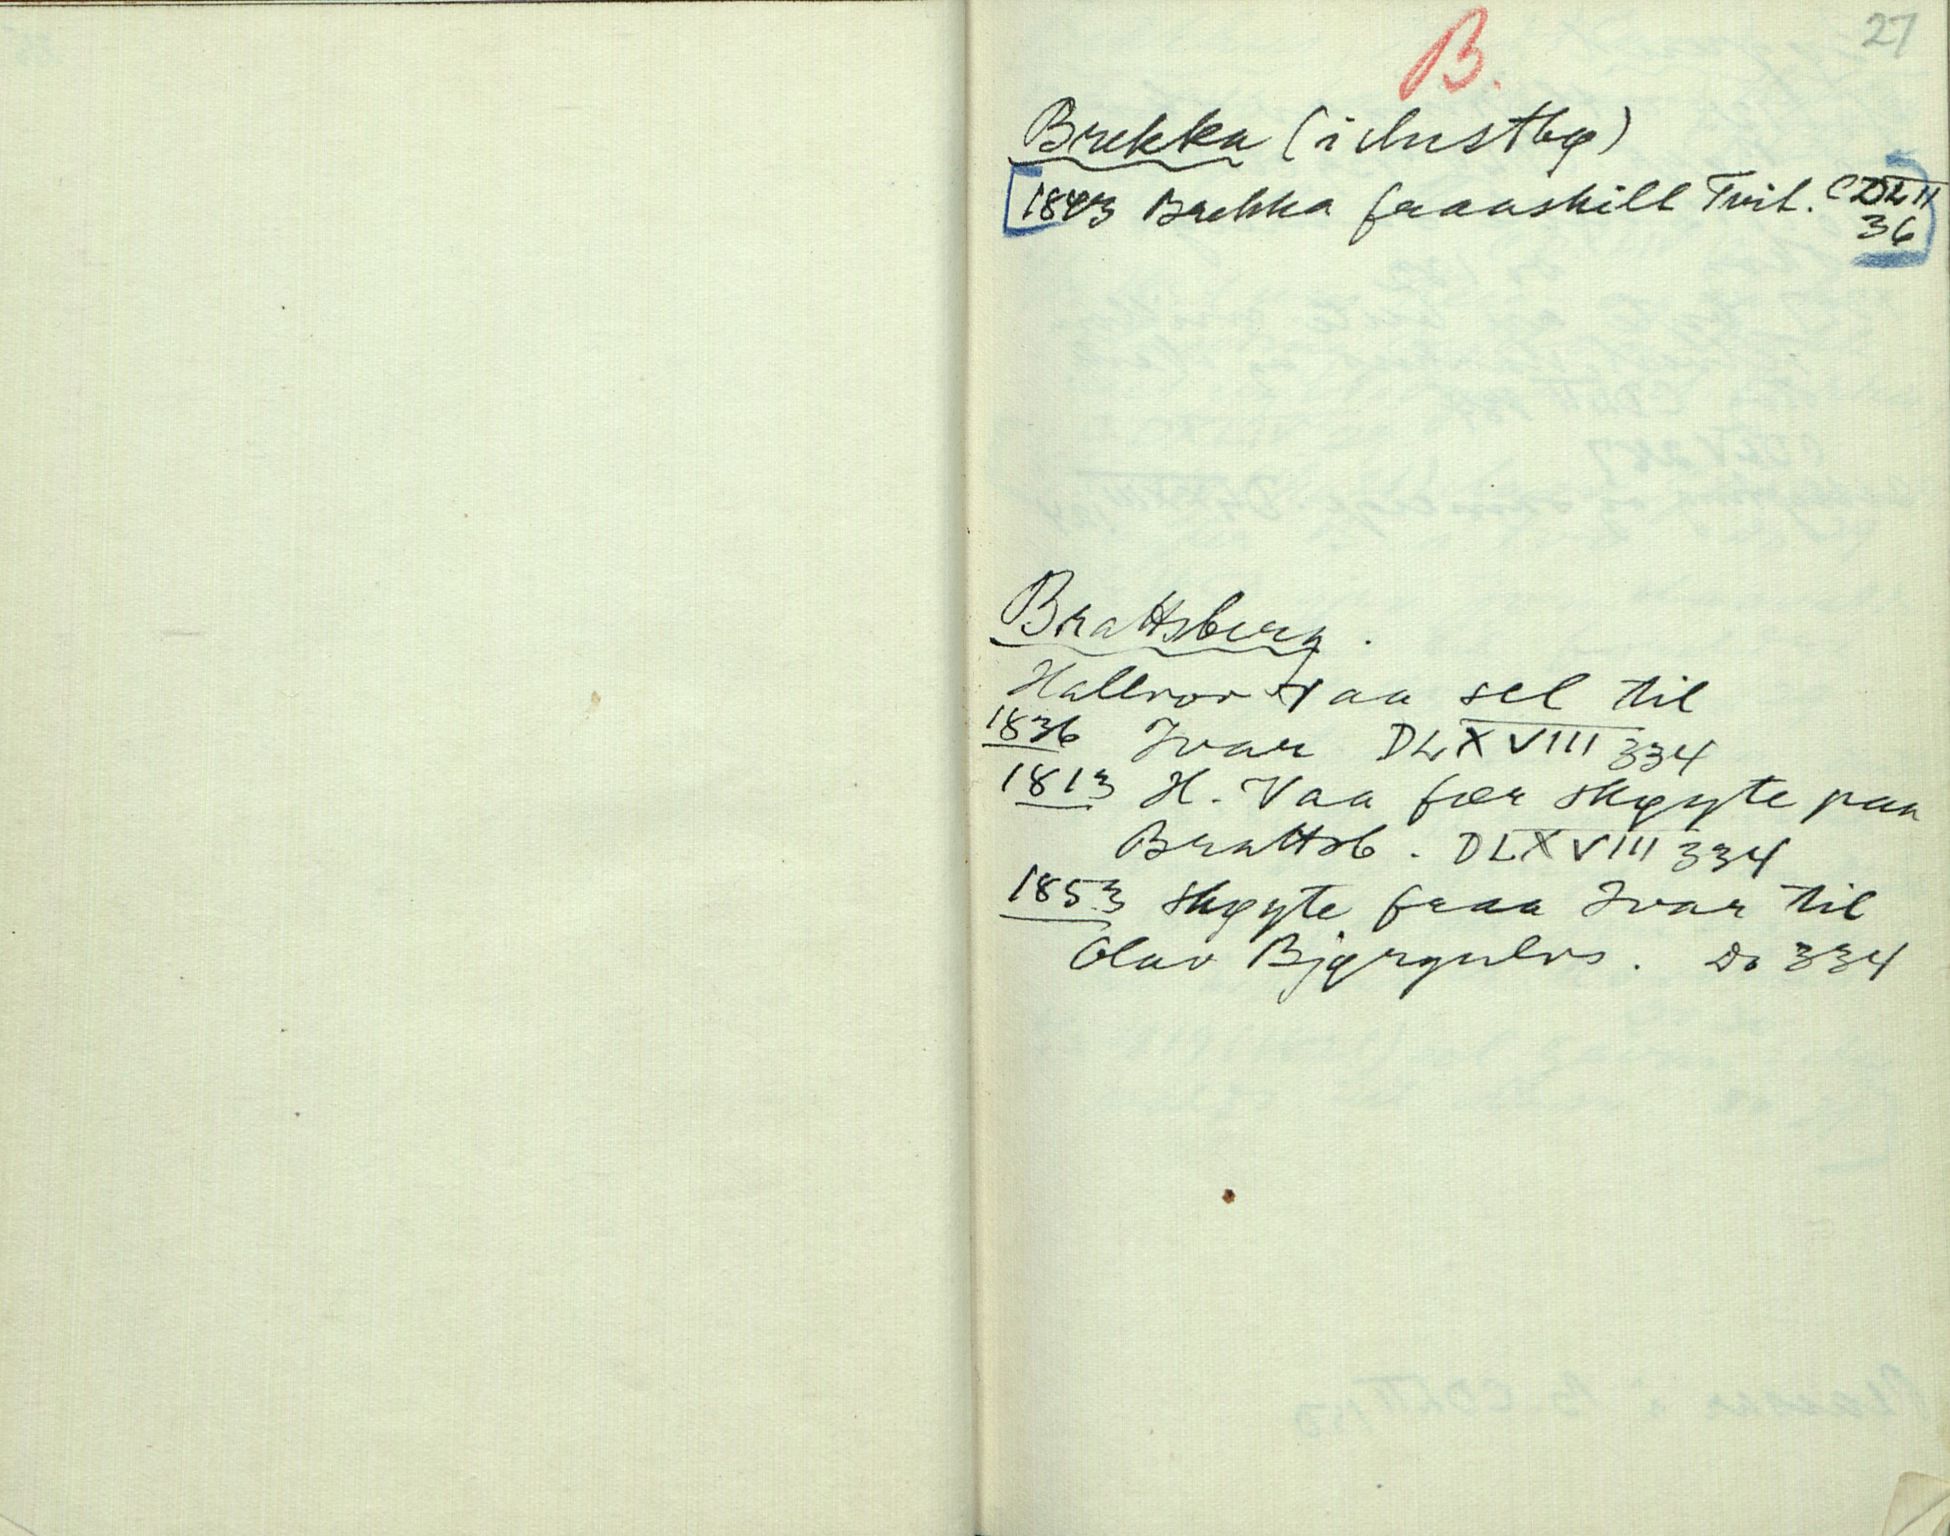 27
B.
Brekka (i Austbø)
1843 Brekka fraaskill Tvit. CDLII
36
Brattsberg.
Hallvor Vaa sel til
1836 Ivar DLXVIII 334
1813 H. Vaa fær skøyte paa
Brattsb. DLXVIII 334
1853 skøyte fraa Ivar til
Olav Bjørgulvs. Do 334